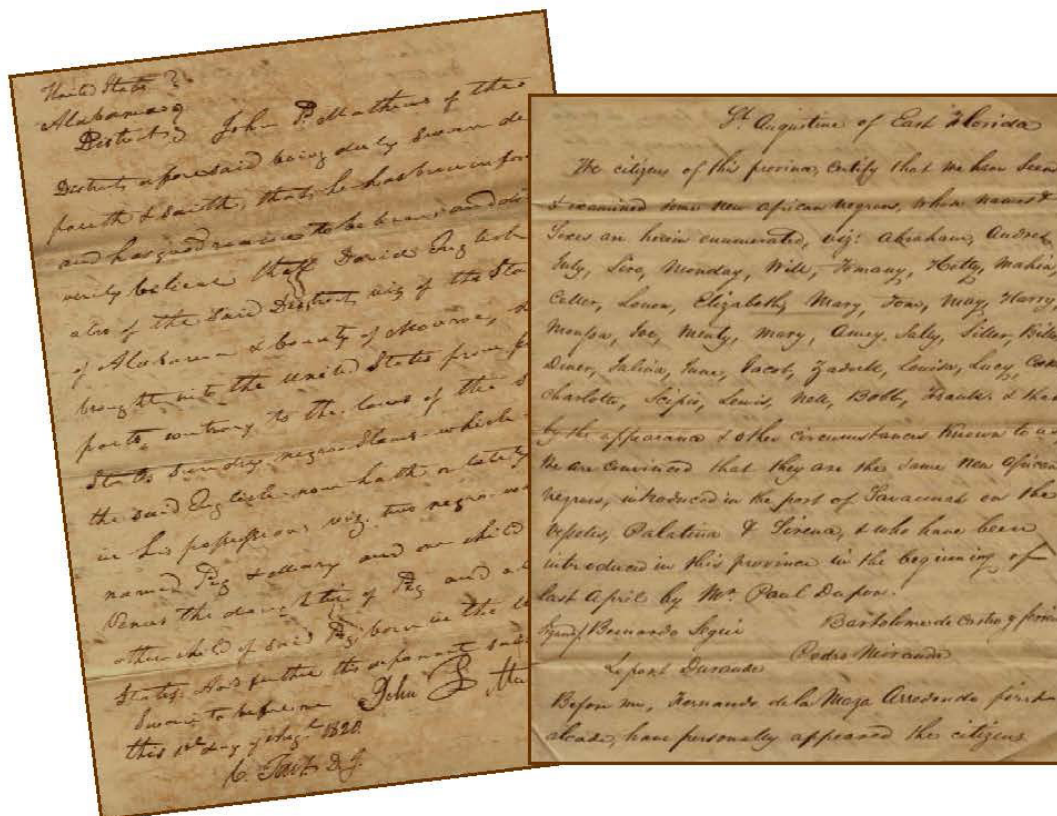 United States
Alabama
District John P. Mathews of the
District aforesaid being duly sworn de
poseth & saith, that he has been infor
and has good reasons to be
verily believe that David English
also of the said District, viz of the Stat
of Alabama & County of Monroe,
brought into the United States from
ports, contrary to the laws of the
States Sundry negro Slaves which
the said English now hath or lately
in his possession, viz. two negro
named Peg & Mary and one child
Venus the daughter of Peg and
other child of said Peg born in the
States. And further this deponant
Sworn to before me John P
this day of Augt. 1820.
C. Tait D. J.
St. Augustine of East Florida
We citizens of this province, certify that we have seen
& examined some new african negroes, whose names &
Sexes are herein enumerated, viz: Abraham, Andrew,
July, Monday, Will, Hetty,
Elizabeth, Mary, Tom, May, Harry,
Joe, Menty, Mary, Amey, Sally, Siller,
Diner, June, Jacob, Louisa, Lucy,
Charlotte, Scipio, Lewis, Nell, Bobb, & that
by the appearance & other circumstances known to us
We are convinced that they are the same new African
negroes, introduced in the port of Savannah on the
vessels, Palatina & Sirena, & who have been
introduced in this province in the beginning of
last April by Mr. Paul Dupon.
Signed Bernardo Segui Bartolome de Castro y
Pedro Miranda
Before me, Fernando de la Maza Arredondo first
alcade, have personally appeared the citizens